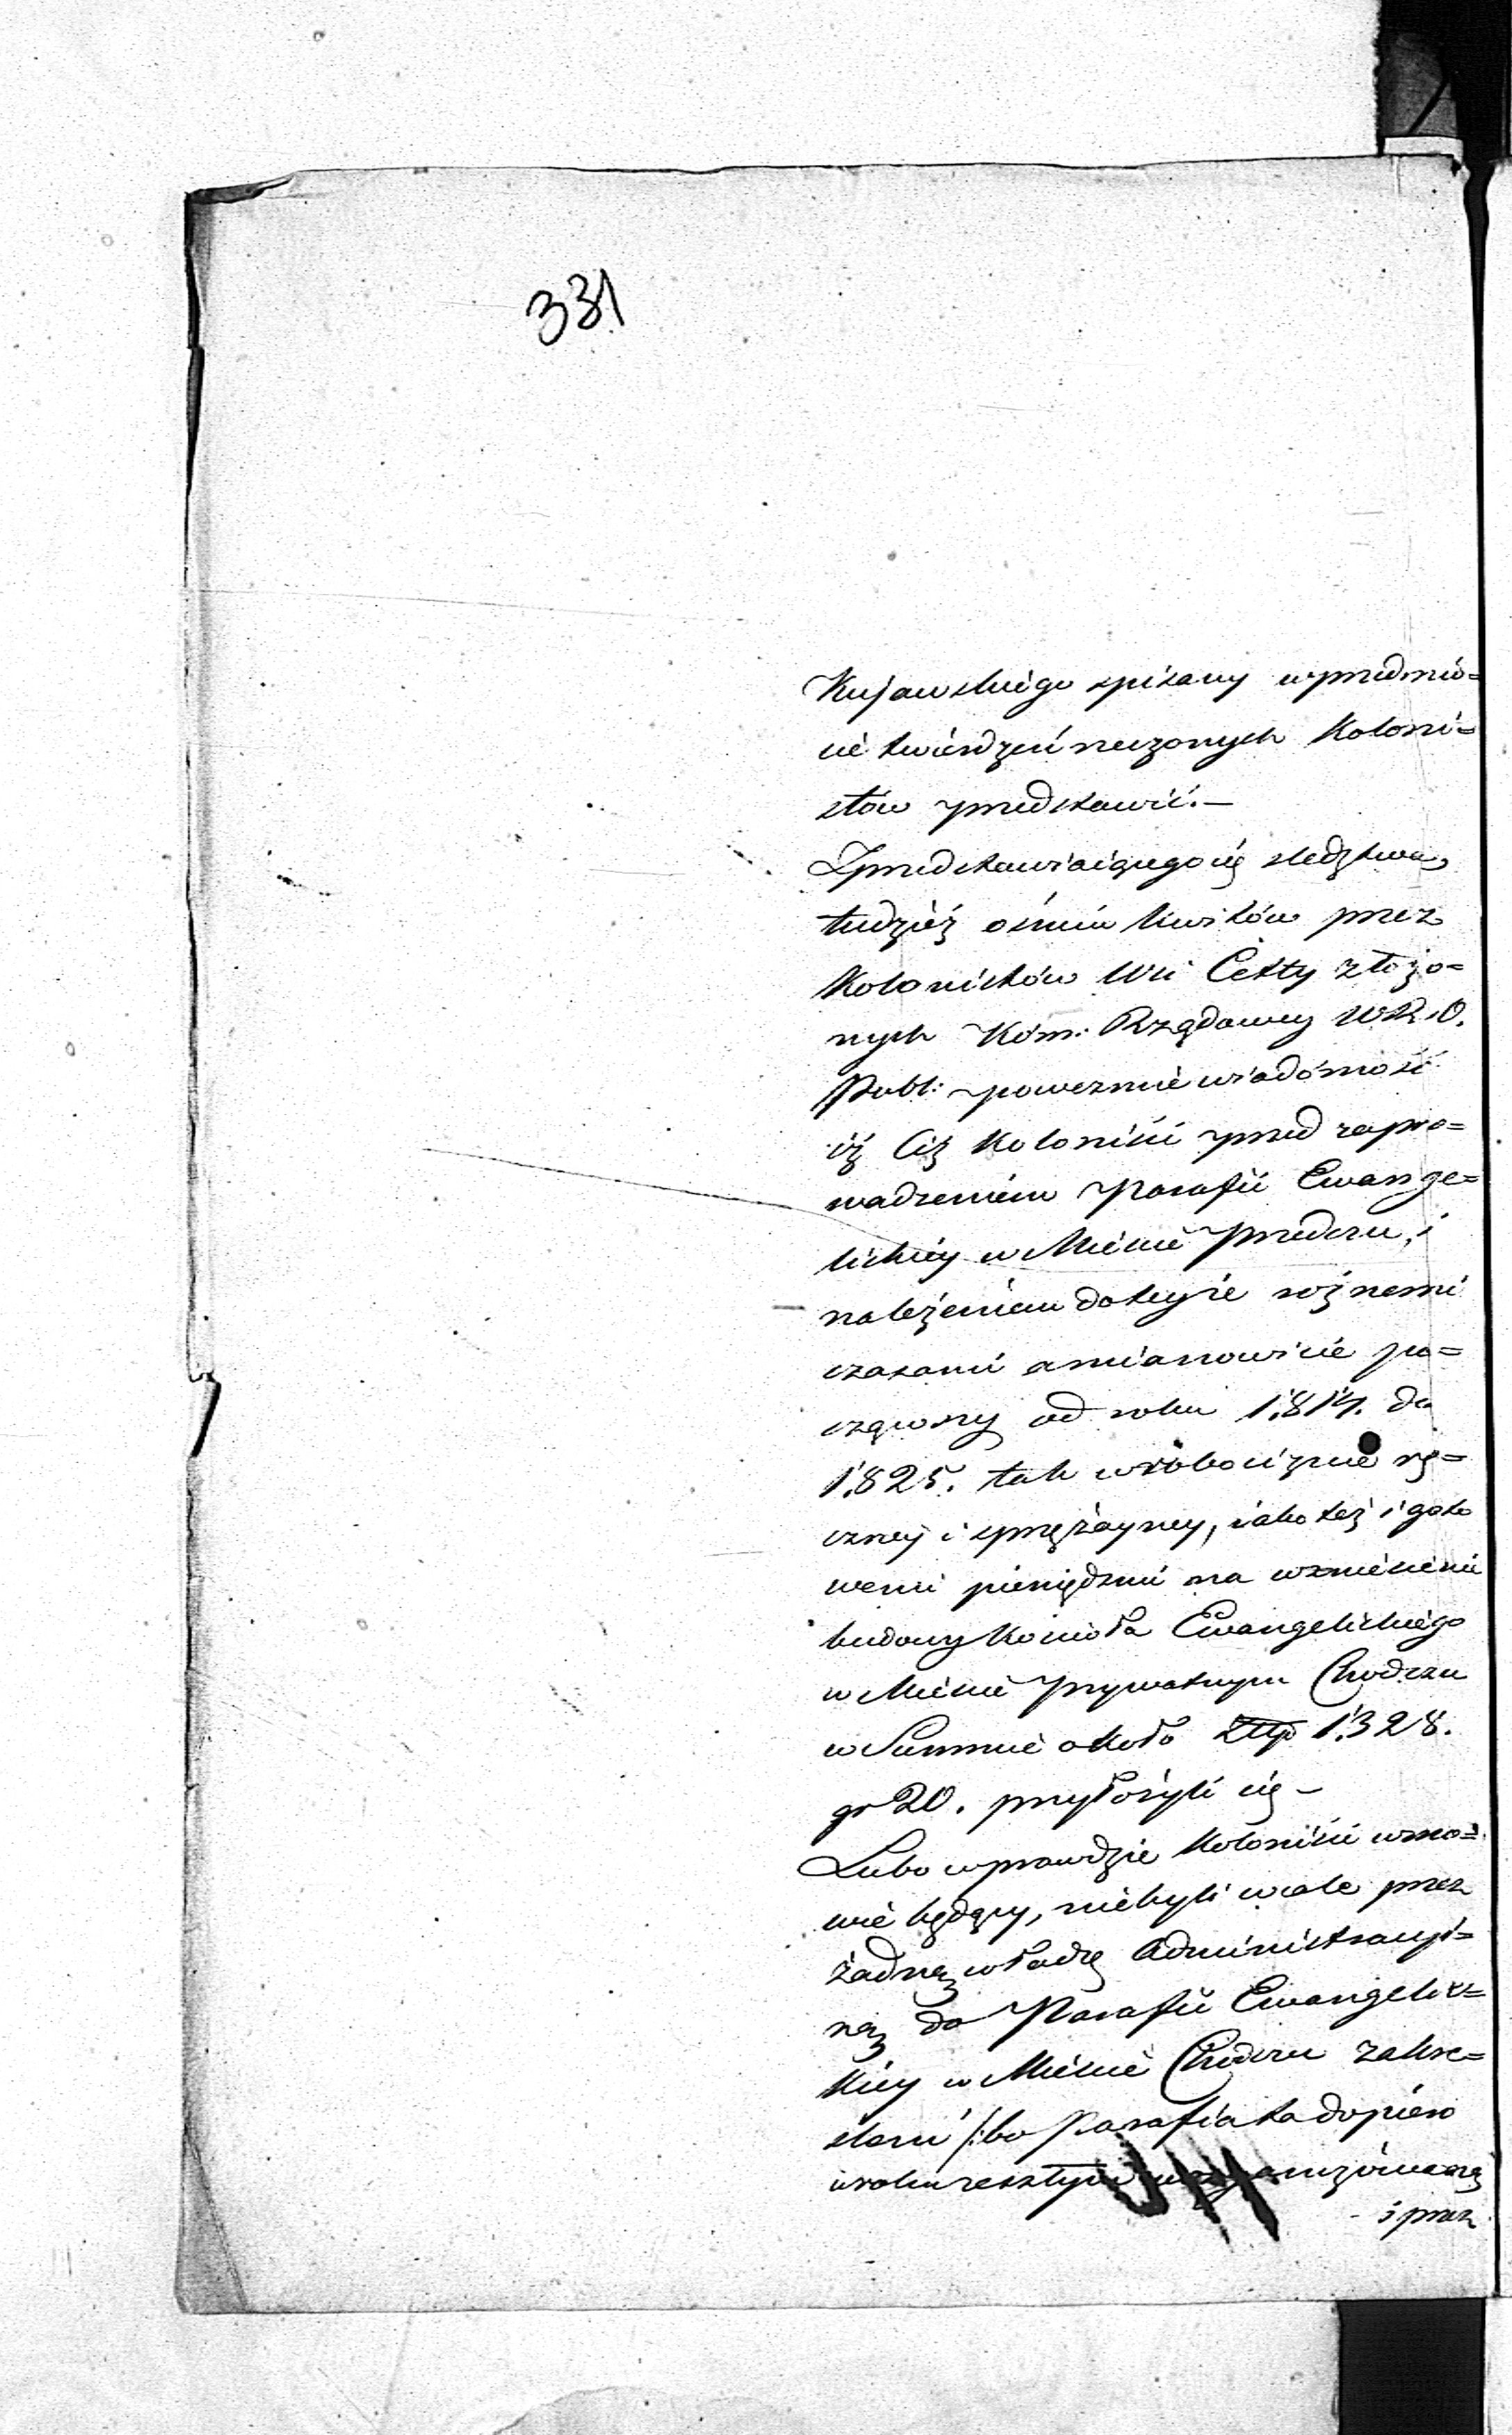 331
Kujawskiego spisany w przedmio=
cie twierdzeń rzeczonych Koloni=
stów przedstawić. –
Z przedstawiaiącego się sledztwa,
tudzież ośmiu kwitów przez
Kolonistów Wsi Cetty złożo=
nych Kom: Rządowey W. R. i O.
Publ: poweźmie wiadomość
iż Ciż Koloniści przed zapro=
wadzeniem Parafii Ewange=
lickiey w Mieście Przedczu, i
należeniem do teyże rożnemi
czasami a mianowicie po=
cząwszy od roku 1814. do
1825. tak w robociznie rę=
czney i sprzężayney, iako też i goto
wemi pieniędzmi na wzniesienie
budowy Kościoła Ewangelickiego
w Mieście Prywatnym Chodczu
w Summie około Złłp 1328.
gr 20. przyłożyli się –
Lubo wprawdzie Koloniści w mo=
wie będący, niebyli wcale przez
żadną władzę Administracyi=
ną do Parafii Ewangelic=
kiey w Mieście Chodczu zakre=
sleni /: bo Parafia ta dopiero
w roku zeszłym zorganizowaną
i przez